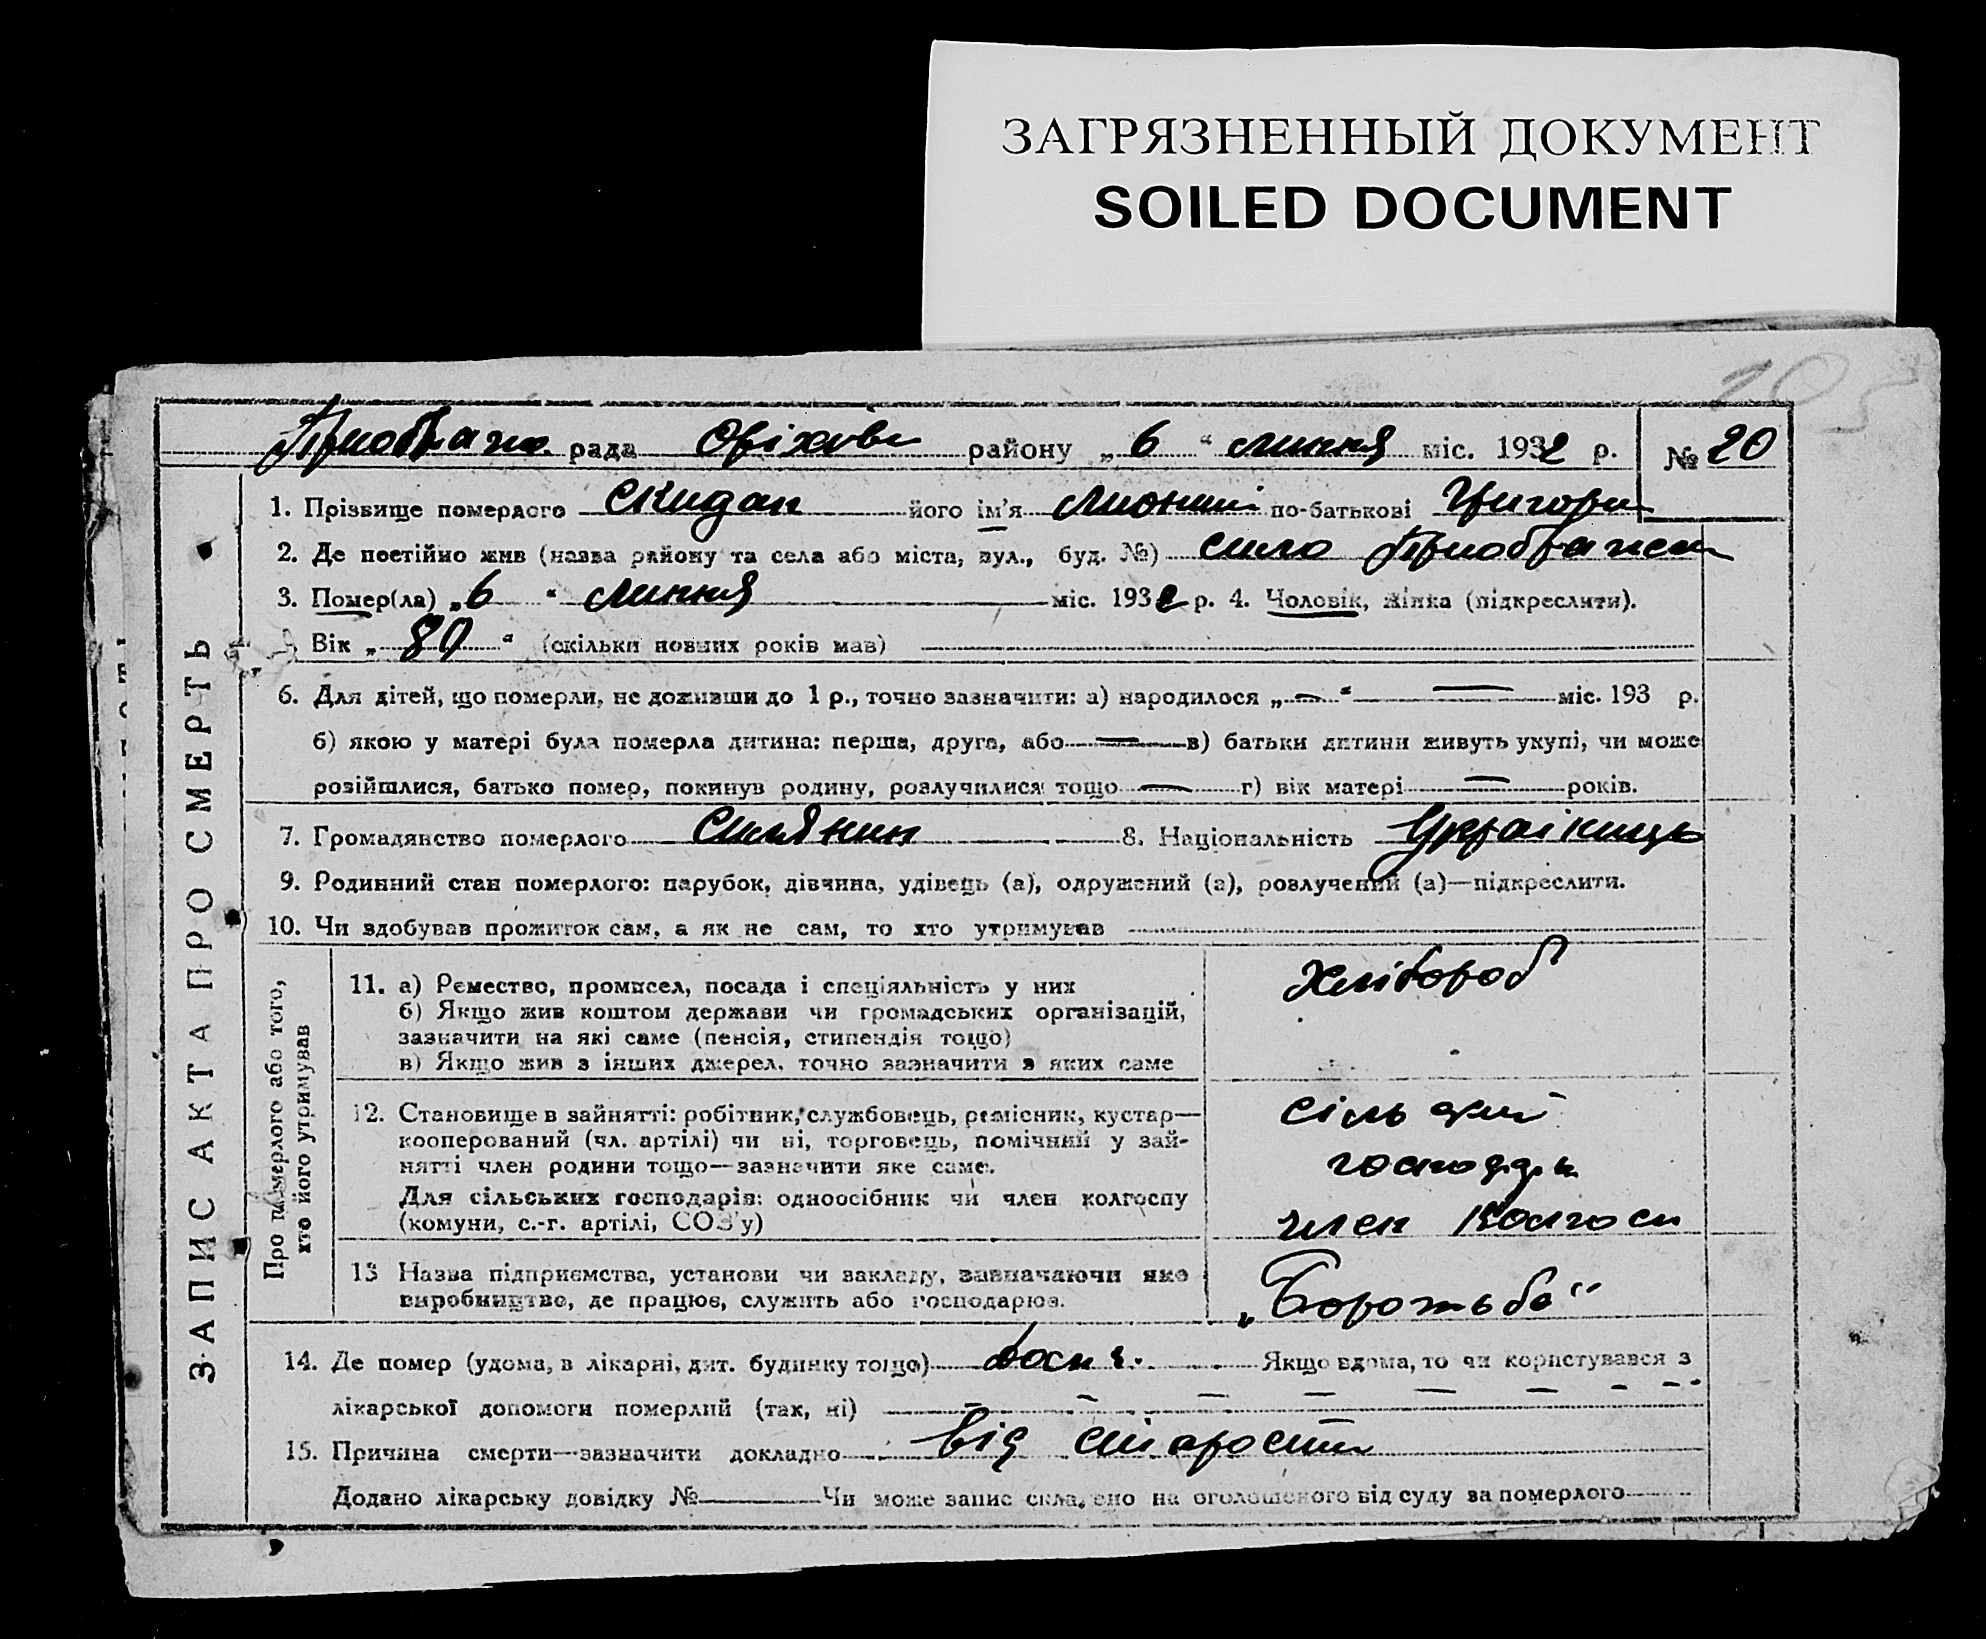 ЗАГРЯЗНЕННЫЙ ДОКУМЕНТ
SOILED DOCUMENT
рада Оріхівс району „ 6 “ липня міс. 1932 р. № 20
ЗАПИС АКТА ПРО СМЕРТЬ
1. Прізвище померлого Скидан його ім'я по-батькові Григоров
2. Де постійно жив (назва району та села або міста, вул., буд. №) село
3. Помер(ла) „ 6 “ липня міс. 1932 р. 4. Чоловік, жінка (підкреслити).
Вік „ 80 “ (скільки повних років мав)
6. Для дітей, що померли, не доживши до 1 р., точно зазначити: а) народилося „ — “ — міс. 193 р.
б) якою у матері була померла дитина: перша, друга, або — в) батьки дитини живуть укупі, чи може
розійшлися, батько помер, покинув родину, розлучилися тощо — г) вік матері — років.
7. Громадянство померлого Силянин 8. Національність Українищь
9. Родинний стан померлого: парубок, дівчина, удівець (а), одружений (а), розлучений (а)—підкреслити.
10. Чи здобував прожиток сам, а як не сам, то хто утримував
Про памерлого або того,
хто його утримував
11. а) Ремество, промисел, посада і спеціяльність у них Хлібороб
б) Якщо жив коштом держави чи громадських організацій,
зазначити на які саме (пенсія, стипендія тощо)
в) Якщо жив з інших джерел, точно зазначити з яких саме
12. Становище в зайнятті: робітник, службовець, ремісник, кустар— сільский
кооперований (чл. артілі) чи ні, торговець, помічний у зай-
нятті член родини тощо—зазначити яке саме.
Для сільських господарів: одноосібник чи член колгоспу
(комуни, с.-г. артілі, СОЗ'у) член Колгосп
13 Назва підприємства, установи чи закладу, зазначаючи яке
виробництво, де працює, служить або господарює. „Боротьба“
14. Де помер (удома, в лікарні, дит. будинку тощо) Якщо вдома, то чи користувався з
лікарської допомоги померлий (так, ні) — — — — — — — -
15. Причина смерти—зазначити докладно від старости
Додано лікарську довідку № Чи може запис складено на оголошеного від суду за померлого